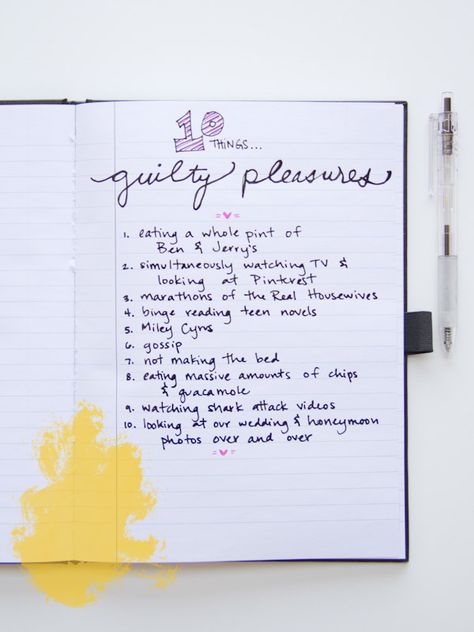 10
THINGS...
guilty pleasures
1. eating a whole pint of
Ben & Jerry's
2. simultaneously watching TV &
looking at Pinterest
3. marathons of the Real Housewives
4. binge reading teen novels
5. Miley Cyrus
6. gossip
7. not making the bed
8. eating massive amounts of chips
& guacamole
9. watching shark attack videos
10. looking at our wedding & honeymoon
photos over and over